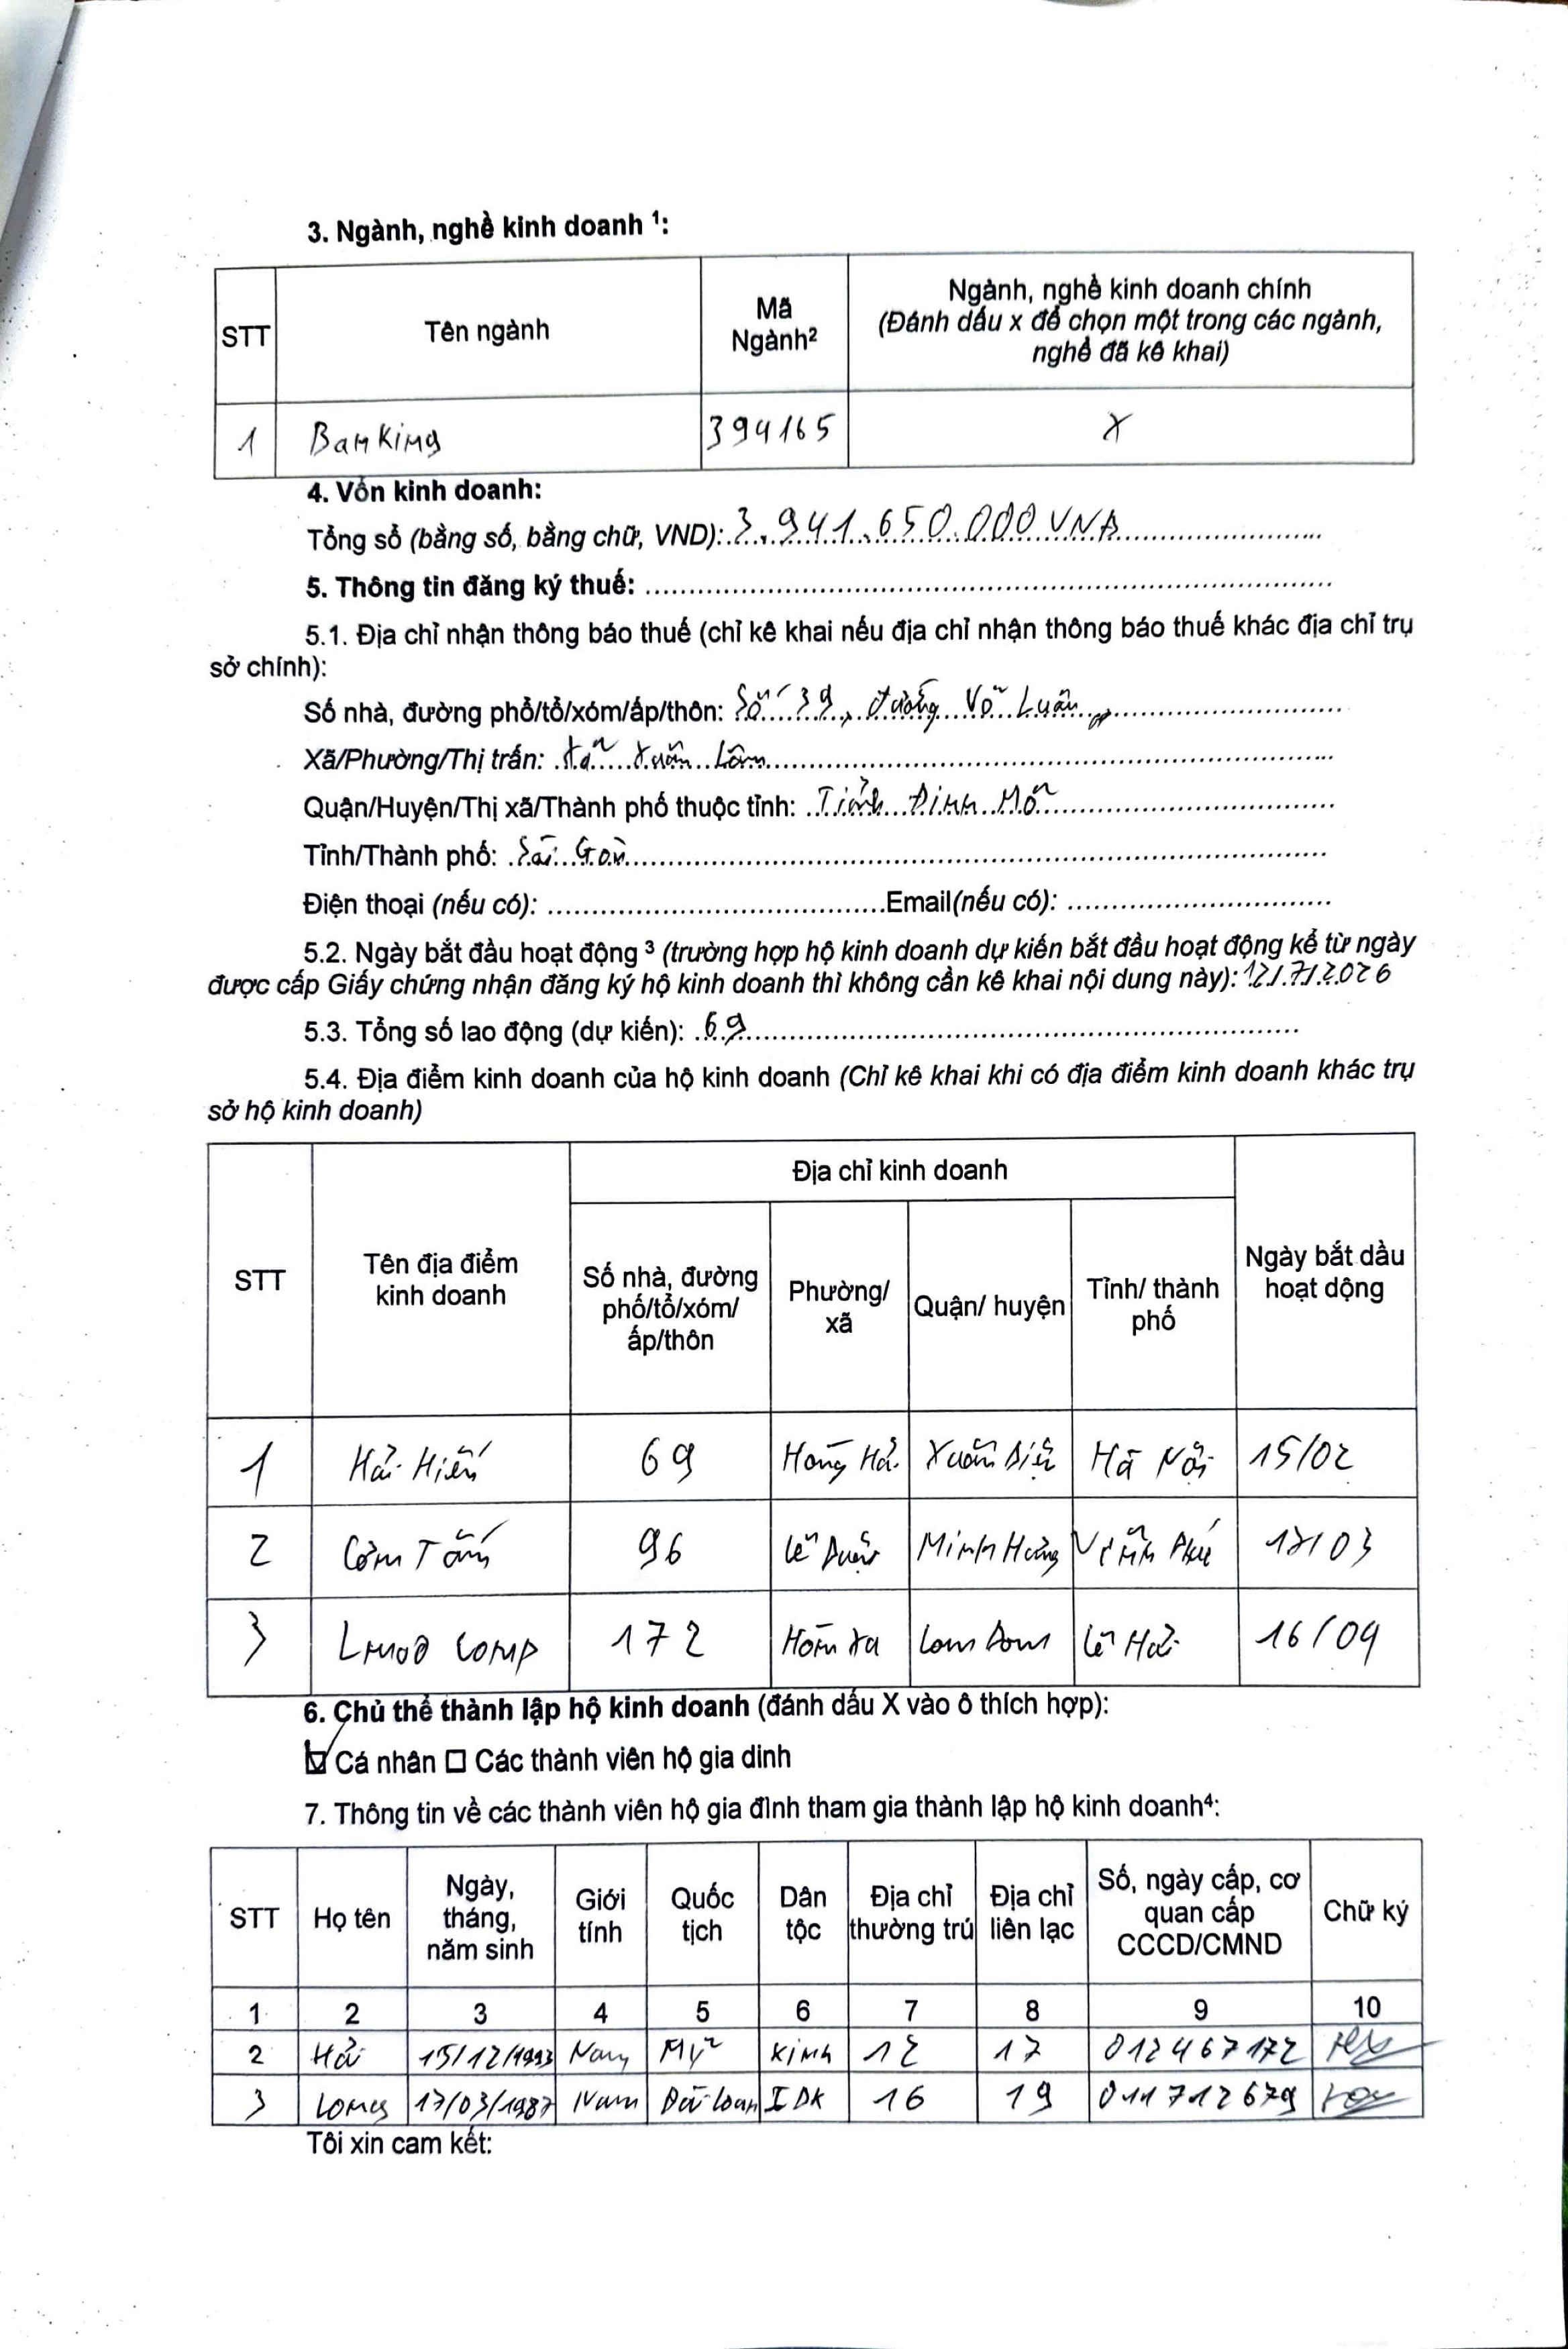 3. Ngành, nghề kinh doanh ¹:
STT Tên ngành Mã Ngành² Ngành, nghề kinh doanh chính (Đánh dấu x để chọn một trong các ngành, nghề đã kê khai)
1 Banking 394165 X
4. Vốn kinh doanh:
Tổng số (bằng số, bằng chữ, VND): 3.941.650.000 VNĐ
5. Thông tin đăng ký thuế:
5.1. Địa chỉ nhận thông báo thuế (chỉ kê khai nếu địa chỉ nhận thông báo thuế khác địa chỉ trụ
sở chính):
Số nhà, đường phố/tổ/xóm/ấp/thôn: Số 39, đường Võ Luân
Xã/Phường/Thị trấn: Xã Xuân Lâm
Quận/Huyện/Thị xã/Thành phố thuộc tỉnh: Tỉnh Đinh Mỗ
Tỉnh/Thành phố: Sài Gòn
Điện thoại (nếu có): Email(nếu có):
5.2. Ngày bắt đầu hoạt động ³ (trường hợp hộ kinh doanh dự kiến bắt đầu hoạt động kể từ ngày
được cấp Giấy chứng nhận đăng ký hộ kinh doanh thì không cần kê khai nội dung này): 12/7/2026
5.3. Tổng số lao động (dự kiến): 69
5.4. Địa điểm kinh doanh của hộ kinh doanh (Chỉ kê khai khi có địa điểm kinh doanh khác trụ
sở hộ kinh doanh)
STT Tên địa điểm kinh doanh Địa chỉ kinh doanh Ngày bắt dầu hoạt động
Số nhà, đường phố/tổ/xóm/ấp/thôn Phường/ xã Quận/ huyện Tỉnh/ thành phố
1 Hải Hiến 69 Hồng Hà Xuân Diệu Hà Nội 15/02
2 Cơm Tấm 96 Lê Duẩn Minh Hưng Vĩnh Phú 17/03
3 172 Lê Hải 16/09
6. Chủ thể thành lập hộ kinh doanh (đánh dấu X vào ô thích hợp):
☑ Cá nhân ☐ Các thành viên hộ gia dinh
7. Thông tin về các thành viên hộ gia đình tham gia thành lập hộ kinh doanh⁴:
STT Họ tên Ngày, tháng, năm sinh Giới tính Quốc tịch Dân tộc Địa chỉ thường trú Địa chỉ liên lạc Số, ngày cấp, cơ quan cấp CCCD/CMND Chữ ký
1 2 3 4 5 6 7 8 9 10
2 Hải 15/12/1993 Nam Mỹ Kinh 12 17 012467172
3 Long 17/03/1987 Nam Đài Loan IDK 16 19 011712679
Tôi xin cam kết: